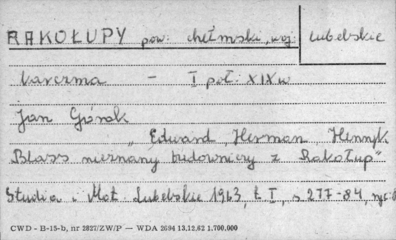 RAKOŁUPY pow. chełmski, woj. lubelskie
karczma - I poł. XIX w
Jan Górak
"Edward, Herman, Henryk
Blass nieznany budowniczy z Rakołup"
Studia i Mat. Lubelskie 1963, t I, s 277-84, ryc.
CWD - B-15-b, nr 2827/ZW/P — WDA 2694 13,12,62 1,700,000